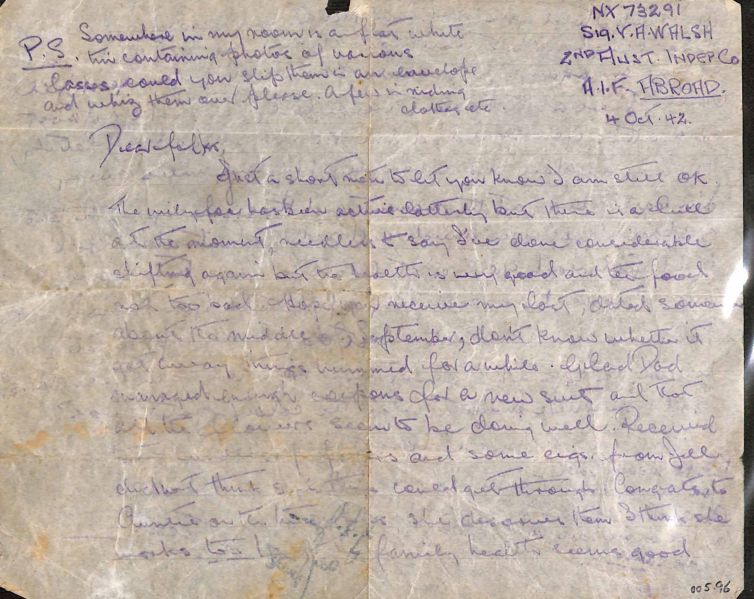 NX 73291
Sig. V.A. WALSH
2ND AUST. INDEP Co
A.I.F. ABROAD.
4 Oct. 42.
P.S. Somewhere in my room is a flat white
tin containing photos of various
lasses could you slip them in an envelope
and whiz them over please. A few in riding
clothes etc.
Dear folks,
Just a short note to let you know I am still OK.
The milky face has been active latterly but there is a lull
at the moment, needless to say I've done considerable
shifting again but the health is very good and the food
not too bad. Hope you receive my last, dated some
about the middle of September, don't know whether it
got away, things hummed for a while. Glad Dad
managed enough coupons for a new suit and that
all the seem to be doing well. Received
and some cigs. from Jill,
didn't think could get through. Congrats, to
Auntie on the she deserves them I think she
works too family health seems good
005.96